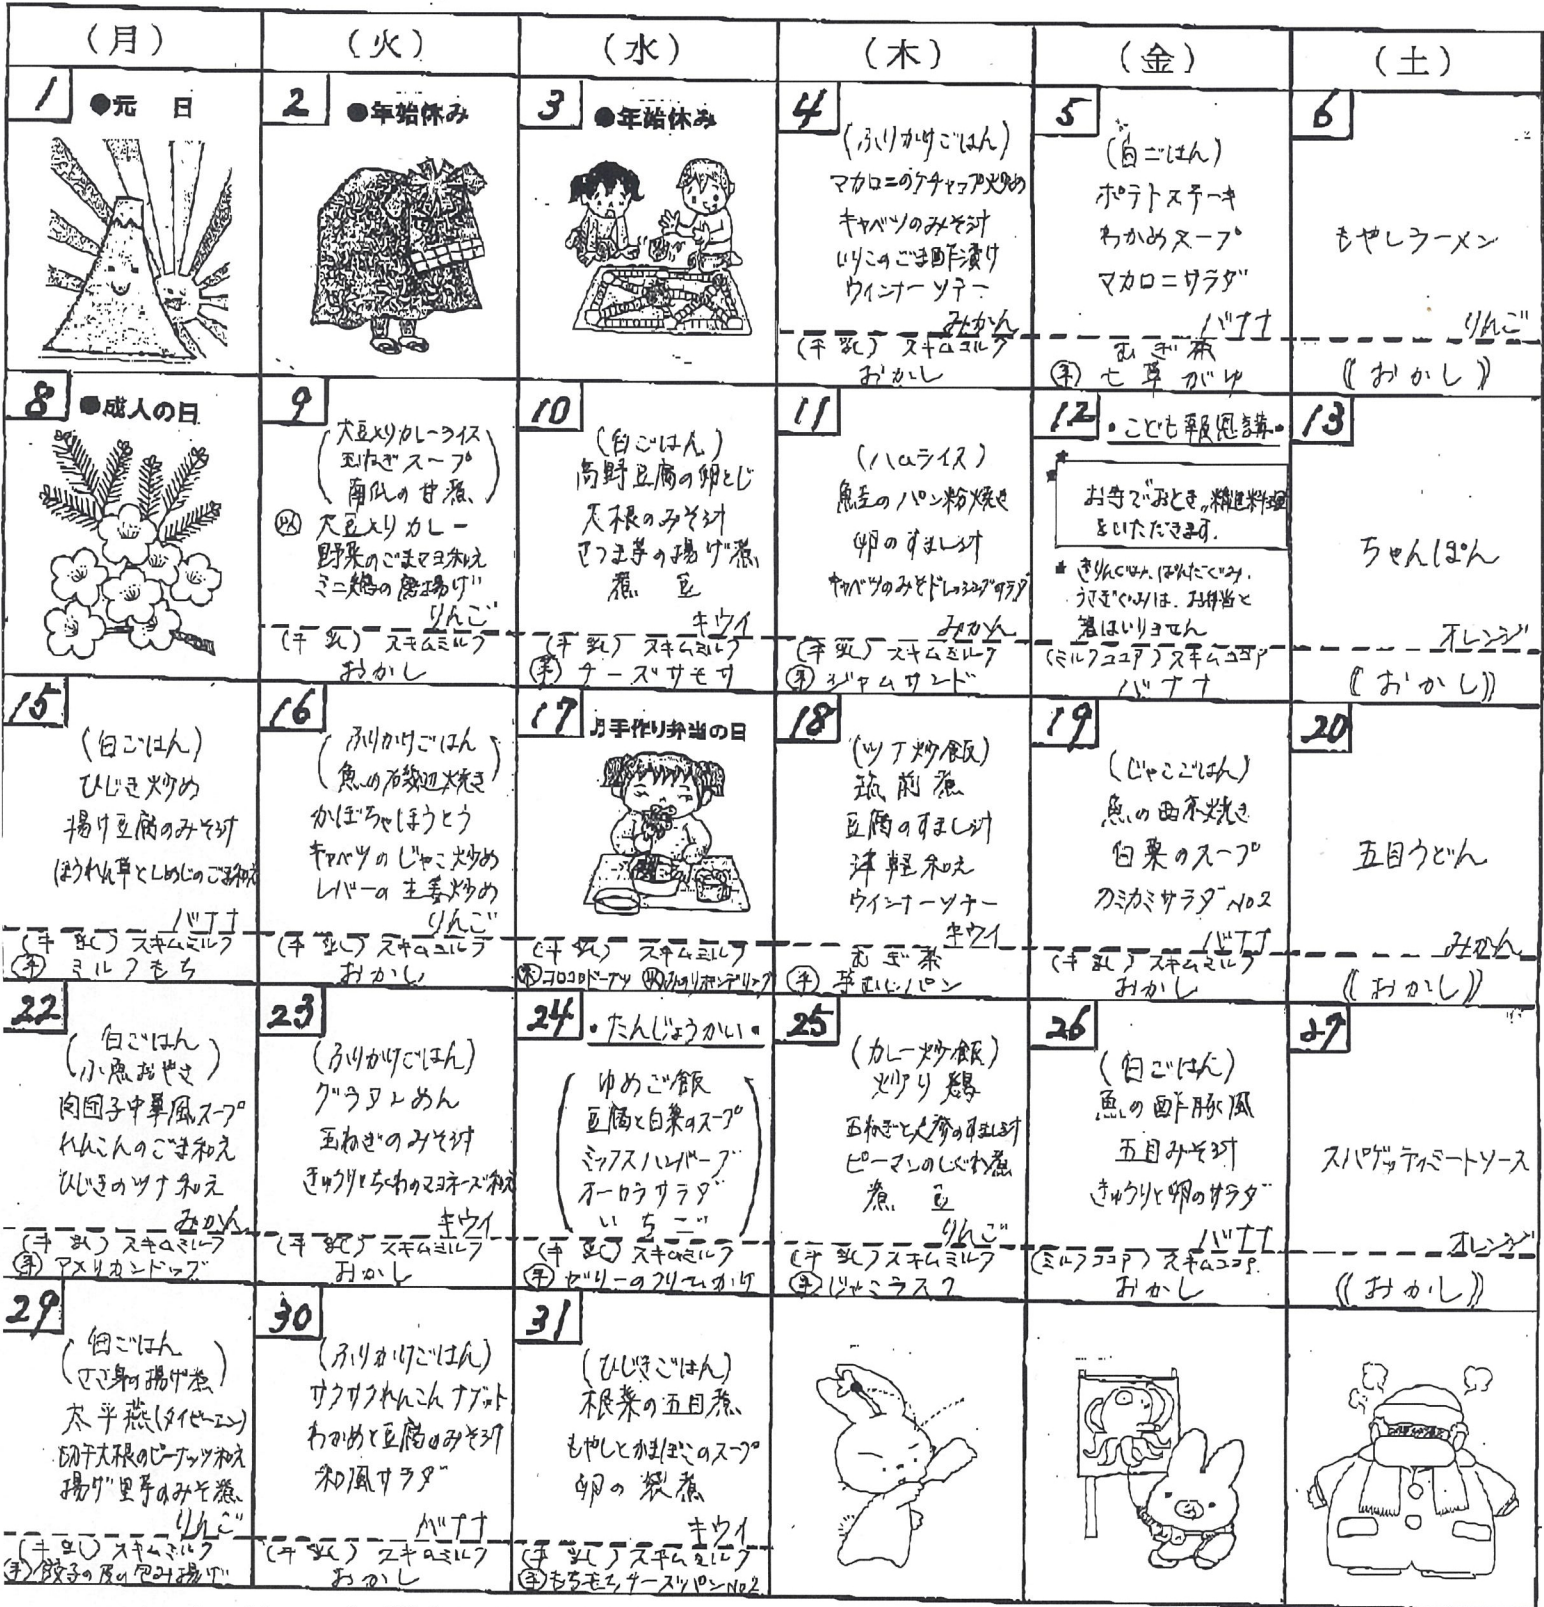 (月)
(火)
(水)
(木)
(金)
(土)
1
●元 日
2
●年始休み
3
●年始休み
4
(ふりかけごはん)
マカロニのケチャップ炒め
キャベツのみそ汁
いりこのごま酢漬け
ウィンナーソテー
みかん
(牛乳) スキムミルク
おかし
5
(白ごはん)
ポテトステーキ
わかめスープ
マカロニサラダ
バナナ
むぎ茶
手 七草がゆ
6
もやしラーメン
りんご
《おかし》
8
●成人の日
9
(大豆入りカレーライス
玉ねぎスープ
南瓜の甘煮)
大豆入りカレー
野菜のごまマヨ和え
ミニ鶏の唐揚げ
りんご
(牛乳) スキムミルク
おかし
10
(白ごはん)
高野豆腐の卵とじ
大根のみそ汁
さつま芋の揚げ煮
煮豆
キウイ
(牛乳) スキムミルク
手 チーズサモサ
11
(ハムライス)
魚のパン粉焼き
卵のすまし汁
キャベツのみそドレッシングサラダ
みかん
(牛乳) スキムミルク
手 ジャムサンド
12
・こども報恩講・
お寺で"おとき"精進料理
をいただきます.
* きりんぐみ、ぱんだぐみ、
うさぎぐみは、お弁当と
箸はいりません
(ミルクココア) スキムココア
バナナ
13
ちゃんぽん
オレンジ
《おかし》
15
(白ごはん)
ひじき炒め
揚げ豆腐のみそ汁
ほうれん草としめじのごま和え
バナナ
(牛乳) スキムミルク
手 ミルクもち
16
(ふりかけごはん
魚の磯辺焼き)
かぼちゃほうとう
キャベツのじゃこ炒め
レバーの生姜炒め
りんご
(牛乳) スキムミルク
おかし
17
♪手作り弁当の日
(牛乳) スキムミルク
コロコロドーナツ
18
(ツナ炒飯)
筑前煮
豆腐のすまし汁
津軽和え
ウインナーソテー
キウイ
むぎ茶
手 芋むしパン
19
(じゃこごはん)
魚の西京焼き
白菜のスープ
カミカミサラダNO2
バナナ
(牛乳) スキムミルク
おかし
20
五目うどん
みかん
《おかし》
22
(白ごはん
小魚おやき)
肉団子中華風スープ
れんこんのごま和え
ひじきのツナ和え
みかん
(牛乳) スキムミルク
手 アメリカンドッグ
23
(ふりかけごはん)
グラタンめん
玉ねぎのみそ汁
きゅうりとちくわのマヨネーズ和え
キウイ
(牛乳) スキムミルク
おかし
24
・たんじょうかい・
(ゆめご飯
豆腐と白菜のスープ
ミックスハンバーグ
オーロラサラダ
いちご)
(牛乳) スキムミルク
手 ゼリーのクリームかけ
25
(カレー炒飯)
炒り鶏
玉ねぎと麩のすまし汁
ピーマンのしぐれ煮
煮豆
りんご
(牛乳) スキムミルク
手 じゃこラスク
26
(白ごはん)
魚の酢豚風
五目みそ汁
きゅうりと卵のサラダ
バナナ
(ミルクココア) スキムココア
おかし
27
スパゲッティミートソース
オレンジ
《おかし》
29
(白ごはん
ささ身の揚げ煮)
太平燕(タイピーエン)
切干大根のピーナッツ和え
揚げ里芋のみそ煮
りんご
(牛乳) スキムミルク
手 餃子の皮の包み揚げ
30
(ふりかけごはん)
サクサクれんこんナゲット
わかめと豆腐のみそ汁
和風サラダ
バナナ
(牛乳) スキムミルク
おかし
31
(ひじきごはん)
根菜の五目煮
もやしとかまぼこのスープ
卵の袋煮
キウイ
(牛乳) スキムミルク
手 もちもちチーズパンNO2